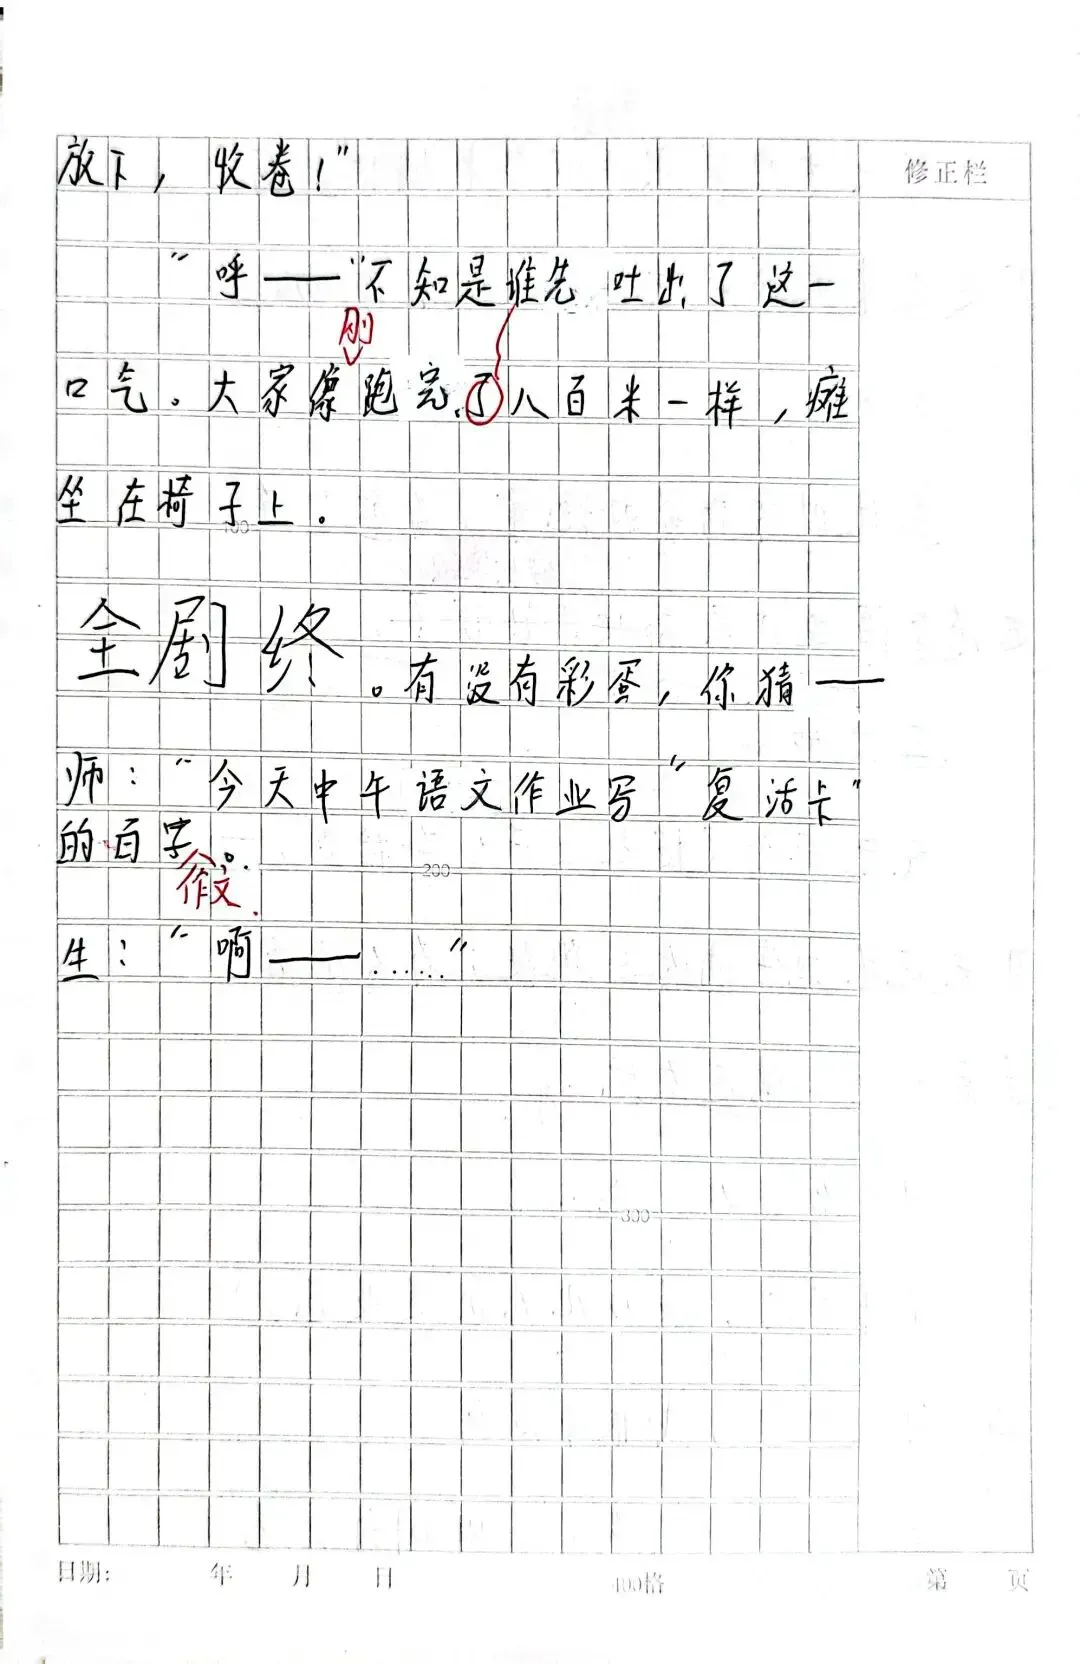 放下，收卷！"
修正栏
"呼——"不知是谁先吐出了这一
刚
口气。大家像跑完了八百米一样，瘫
坐在椅子上。
100
全剧终。有没有彩蛋，你猜——
师："今天中午语文作业写"复活卡"
的百字。
作文
200
生："啊——……"
300
日期： 年 月 日 400格 第 页